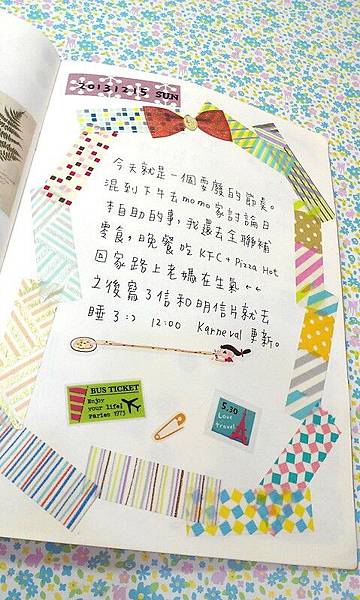 20131215 SUN
今天就是一個耍廢的節奏。
混到下午去momo家討論日
本自助的事,我還去全聯補
零食,晚餐吃 KFC + Pizza Hot
回家路上老媽在生氣←←
之後寫了信和明信片就去
睡了:) 12:00 Karneval 更新。
BUS TICKET
Enjoy
your life!
Paries 1973
5.30
Love
travel